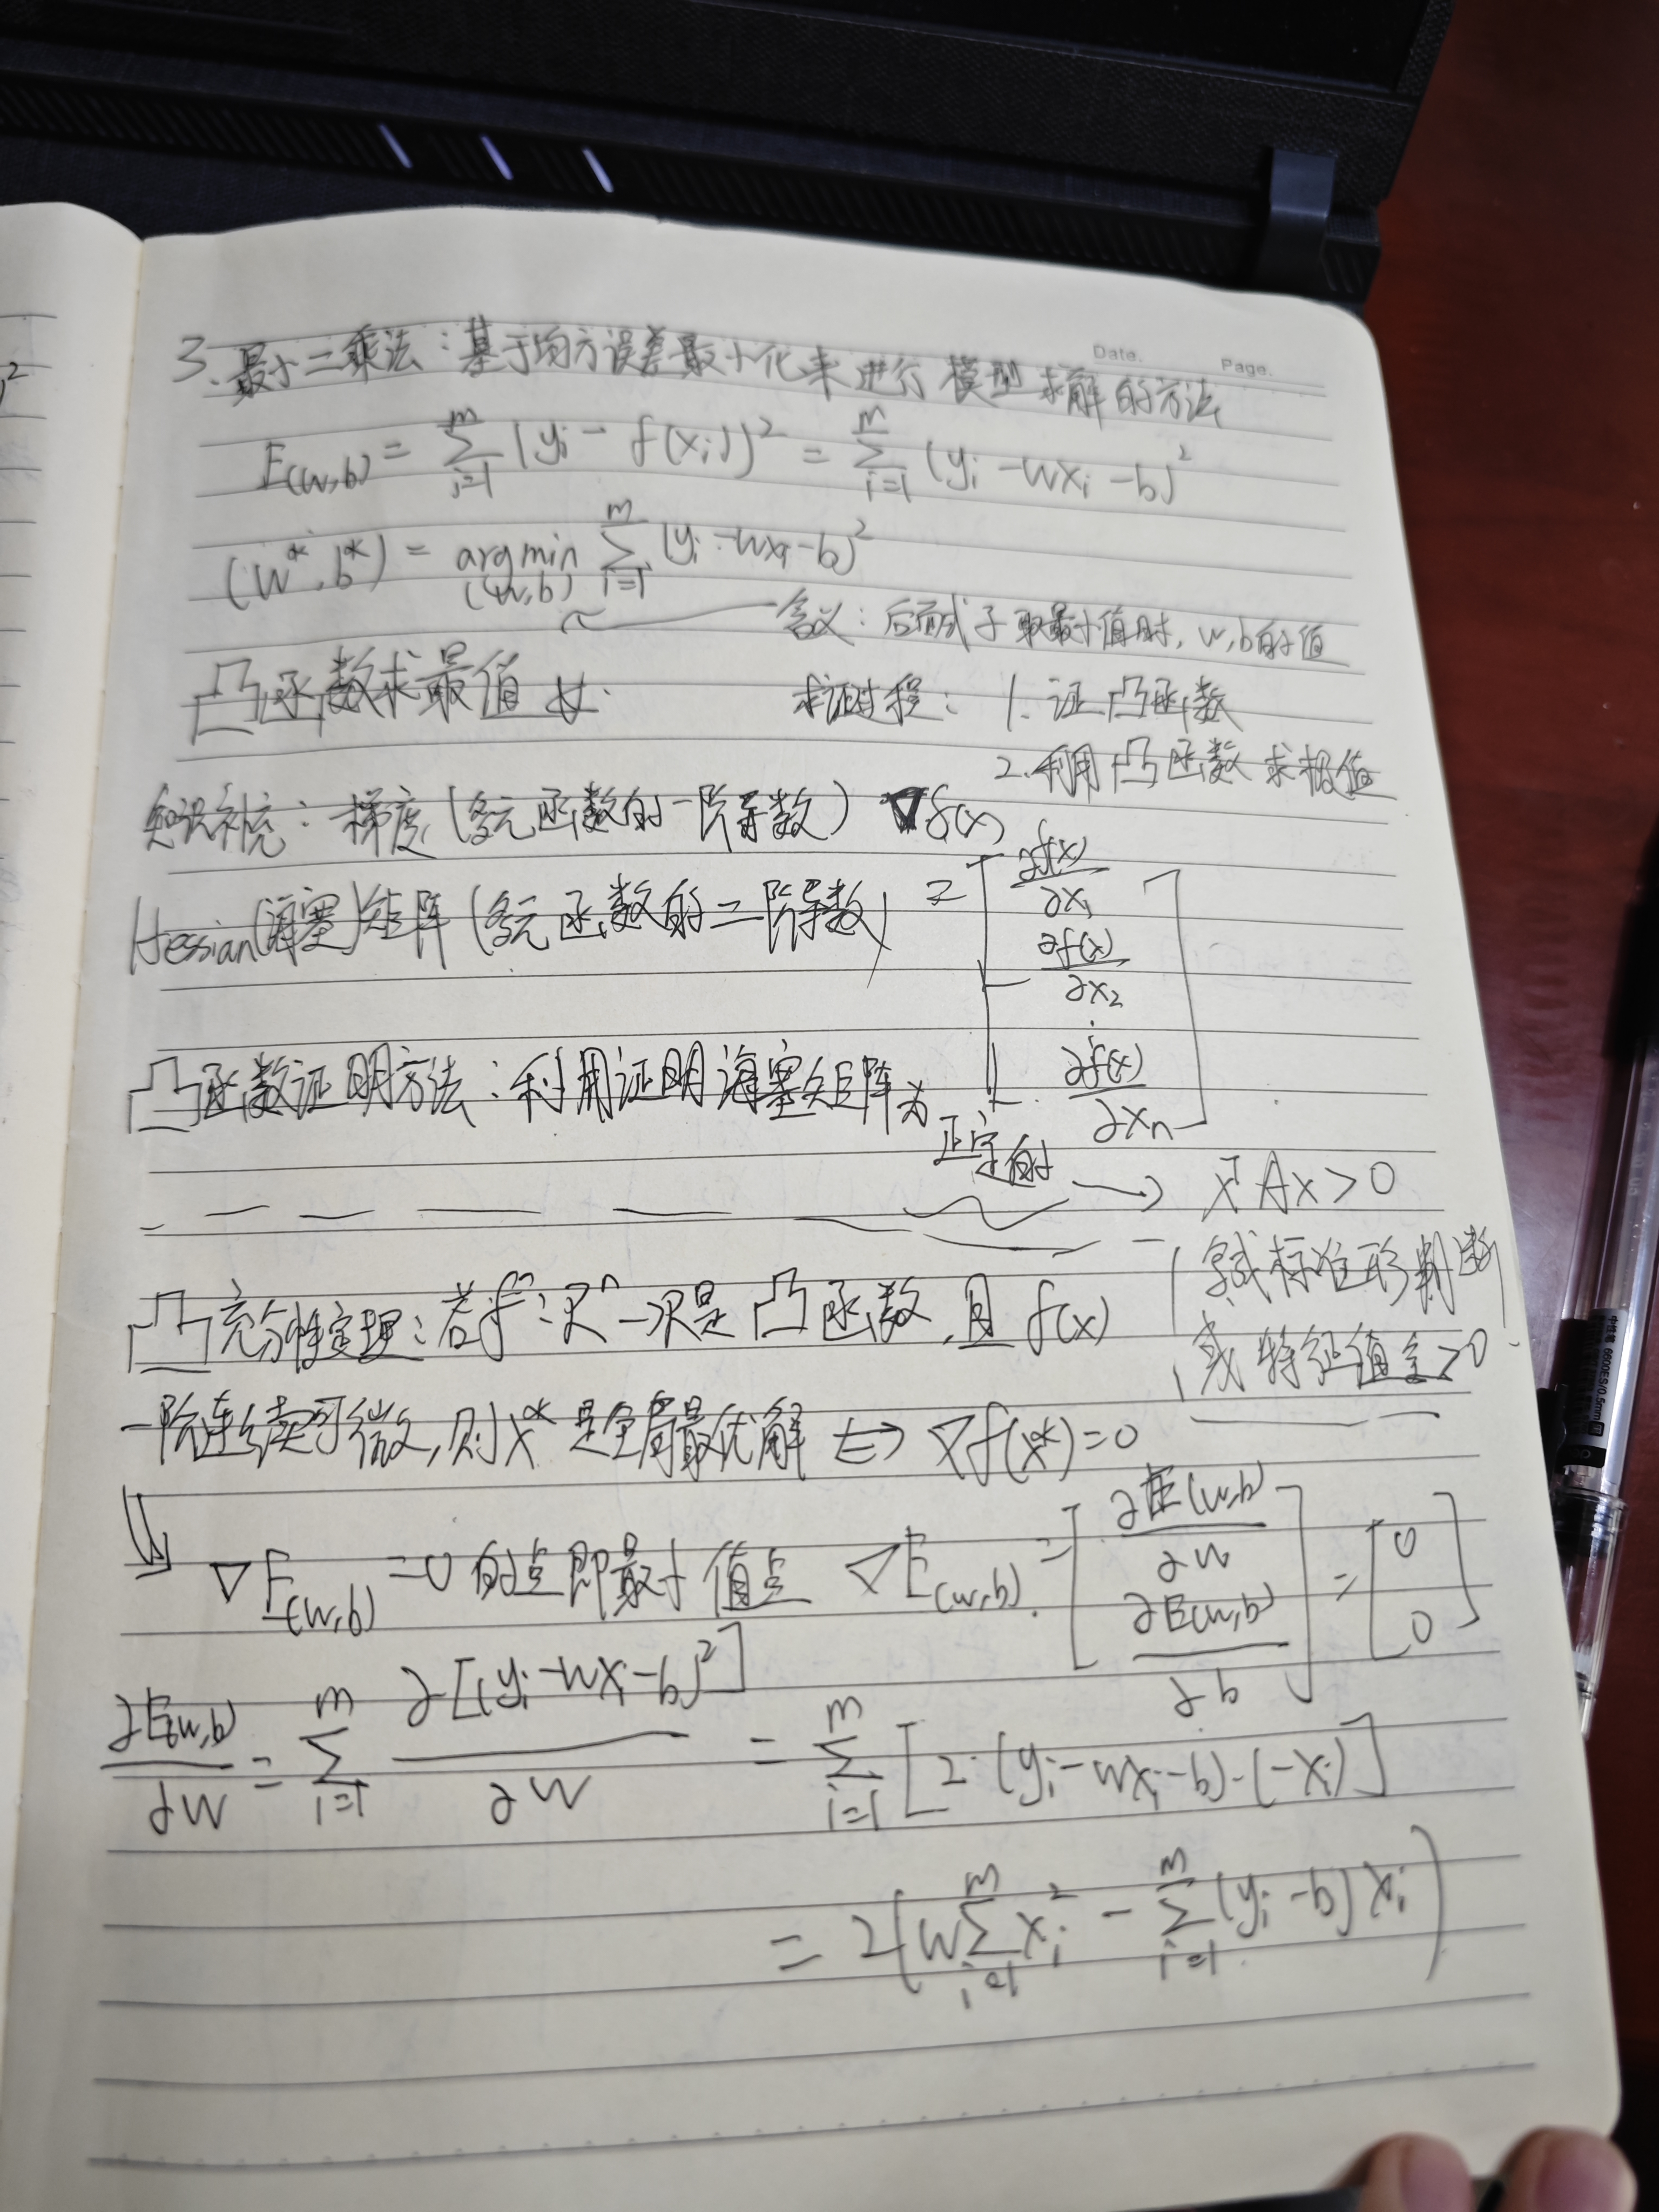 Date.
Page.
3. 最小二乘法:基于均方误差最小化来进行模型求解的方法
E(w,b) = ∑_{i=1}^{m} (yi - f(xi))² = ∑_{i=1}^{m} (yi - wxi - b)²
(w*, b*) = arg min_{(w,b)} ∑_{i=1}^{m} (yi - wxi - b)²
含义:后面式子取最小值时, w,b的值
凸函数求最值
求证过程: 1. 证凸函数
2. 利用凸函数求极值
知识补充:梯度(多元函数的一阶导数) ∇f(x)
Hessian(海塞)矩阵(多元函数的二阶导数) = [ ∂f(x)/∂x1
∂f(x)/∂x2
⋮
∂f(x)/∂xn ]
凸函数证明方法:利用证明海塞矩阵为正定的
→ xᵀAx>0
标准形判断
或特征值全>0
凸充分性定理:若f 是凸函数,且 f(x)
一阶连续可微,则x*是全局最优解 ⇔ ∇f(x*)=0
∇E(w,b) = 0 的点即最小值点 ∇E(w,b) = [ ∂E(w,b)/∂w
∂E(w,b)/∂b ] = [ 0
0 ]
∂E(w,b)/∂w = ∑_{i=1}^{m} ∂[(yi - wxi - b)²]/∂w = ∑_{i=1}^{m} [2·(yi - wxi - b)·(-xi)]
= 2(w∑_{i=1}^{m} xi² - ∑_{i=1}^{m} (yi - b)xi)
中性笔 6600ES/0.5mm